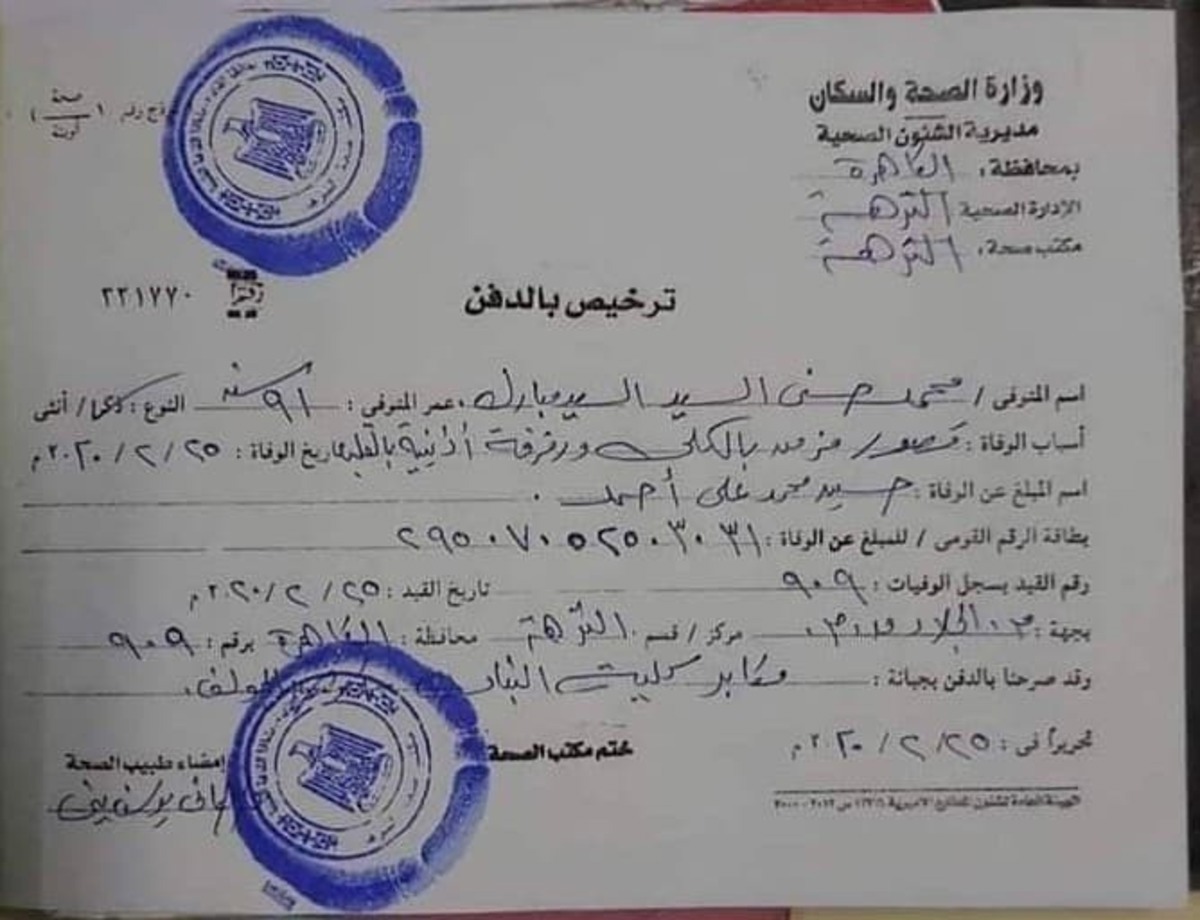 وزارة الصحة والسكان
مديرية الشئون الصحية
بمحافظة: القاهرة
الإدارة الصحية النزهة
مكتب صحة: النزهة
ترخيص بالدفن
٢٢١٧٧٠
اسم المتوفى / محمد حسنى السيد السيد مبارك عمر المتوفى: ٩١ سنة النوع: ذكر / أنثى
أسباب الوفاة: قصور مزمن بالكلى ورفرفة أذينية بالقلب تاريخ الوفاة: ٢٥ / ٢ / ٢٠٢٠ م
اسم المبلغ عن الوفاة: حسيد محمد على أحمد
بطاقة الرقم القومى / للمبلغ عن الوفاة: ٢٩٥٠٧٠٥٢٥٠٣٠٣١
رقم القيد بسجل الوفيات: ٩٠٩ تاريخ القيد: ٢٥ / ٢ / ٢٠٢٠ م
بجهة: مركز / قسم النزهة محافظة: القاهرة برقم: ٩٠٩
وقد صرحنا بالدفن بجبانة: مقابر كلية البنات
تحريراً فى: ٢٥ / ٢ / ٢٠٢٠ م
ختم مكتب الصحة
إمضاء طبيب الصحة